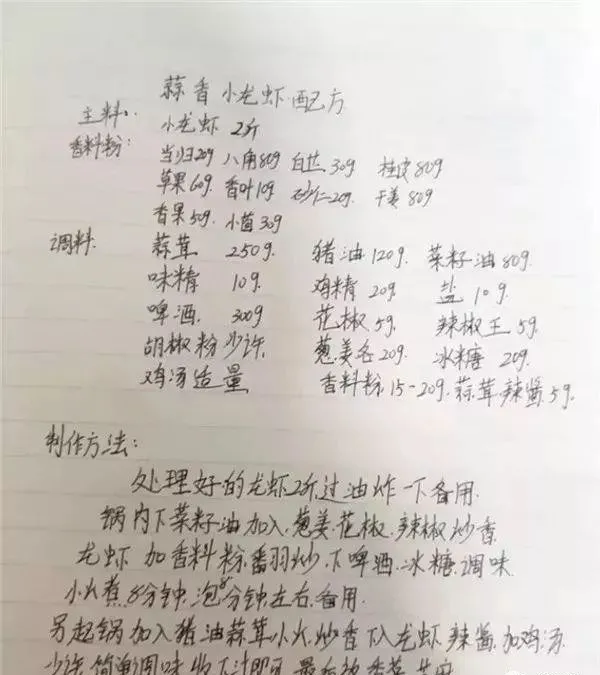 蒜香小龙虾配方
主料: 小龙虾 2斤
香料粉: 当归20g 八角80g 白芷30g 桂皮80g
草果60g. 香叶10g 砂仁20g. 干姜80g
香果50g. 小茴30g
调料. 蒜茸 250g. 猪油120g. 菜籽油80g.
味精 10g. 鸡精 20g. 盐 10g.
啤酒. 300g 花椒5g. 辣椒王5g.
胡椒粉少许. 葱姜各20g. 冰糖 20g.
鸡汤适量 香料粉.15-20g.蒜茸.辣酱.5g.
制作方法:
处理好的龙虾2斤过油炸一下备用.
锅内下菜籽油加入.葱姜.花椒.辣椒炒香
龙虾加香料粉.番羽炒.下啤酒.冰糖.调味
小火煮.8分钟.泡8分钟左右.备用.
另起锅加入猪油蒜茸小火.炒香下入龙虾.辣酱.加鸡汤
少许.简单调味收下汁即可.最后放香葱.芝麻